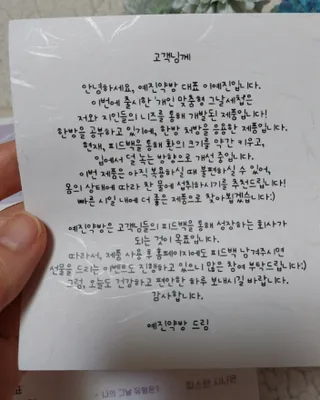 고객님께
안녕하세요, 예진약방 대표 이예진입니다.
이번에 출시한 '개인 맞춤형 그날세첩은
저와 지인들의 니즈를 통해 개발된 제품입니다!
한방을 공부하고 있기에, 한방 처방을 응용한 제품입니다.
현재, 피드백을 통해 환의 크기를 약간 키우고,
입에서 덜 녹는 방향으로 개선 중입니다.
이번 제품은 아직 복용하실 때 불편하실 수 있어,
몸의 상태에 따라 찬 물에 섭취하시기를 추천드립니다!
빠른 시일 내에 더 좋은 제품으로 찾아뵙겠습니다:)
예진약방은 고객님들의 피드백을 통해 성장하는 회사가
되는 것이 목표입니다.
따라서, 제품 사용 후 홈페이지에도 피드백 남겨주시면
선물을 드리는 이벤트도 진행하고 있으니 많은 참여 부탁드립니다:)
그럼, 오늘도 건강하고 편안한 하루 보내시길 바랍니다.
감사합니다.
예진약방 드림